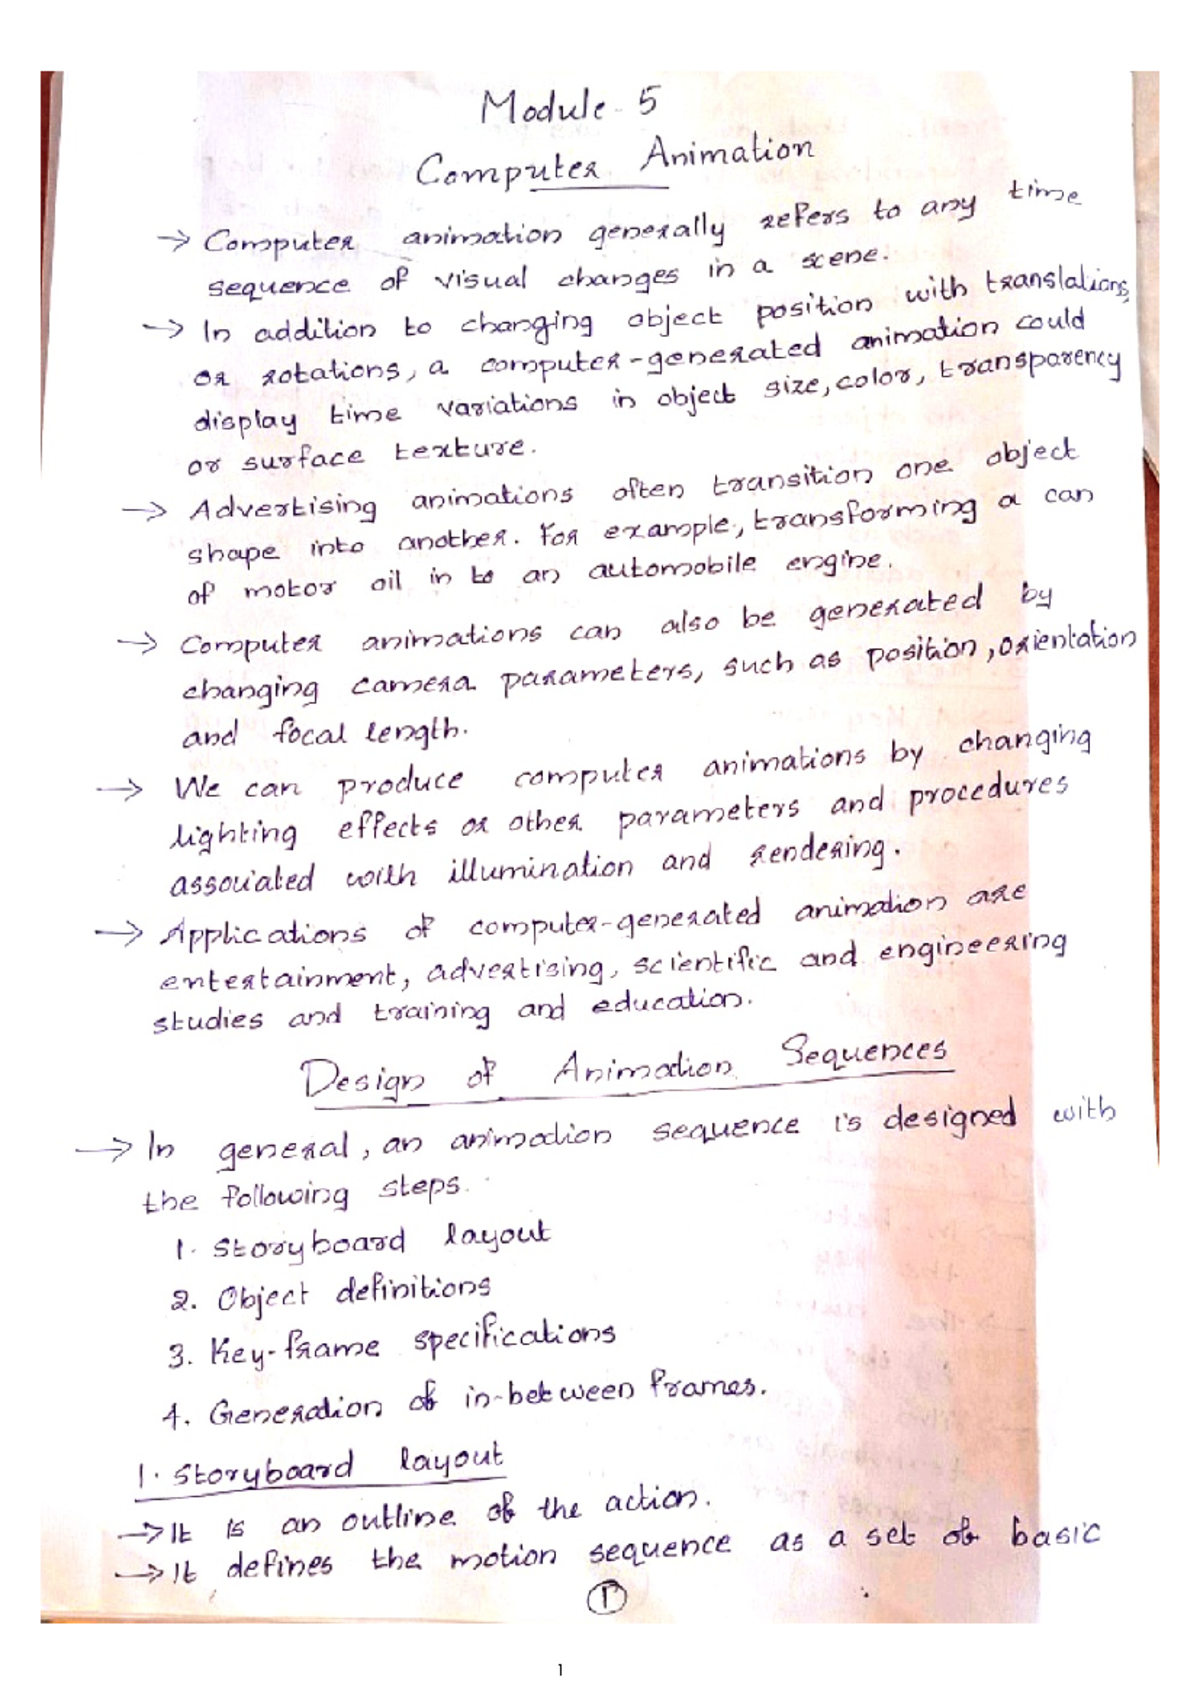 Module - 5
Computer Animation
→ Computer animation generally refers to any time
sequence of visual changes in a scene.
→ In addition to changing object position with translations,
or rotations, a computer-generated animation could
display time variations in object size, color, transparency
or surface texture.
→ Advertising animations often transition one object
shape into another. For example, transforming a can
of motor oil in to an automobile engine.
→ Computer animations can also be generated by
changing camera parameters, such as position, orientation
and focal length.
→ We can produce computer animations by changing
lighting effects or other parameters and procedures
associated with illumination and rendering.
→ Applications of computer-generated animation are
entertainment, advertising, scientific and engineering
studies and training and education.
Design of Animation Sequences
→ In general, an animation sequence is designed with
the following steps.
1. Storyboard layout
2. Object definitions
3. Key-frame specifications
4. Generation of in-between frames.
1. Storyboard layout
→ It is an outline of the action.
→ It defines the motion sequence as a set of basic
1
1